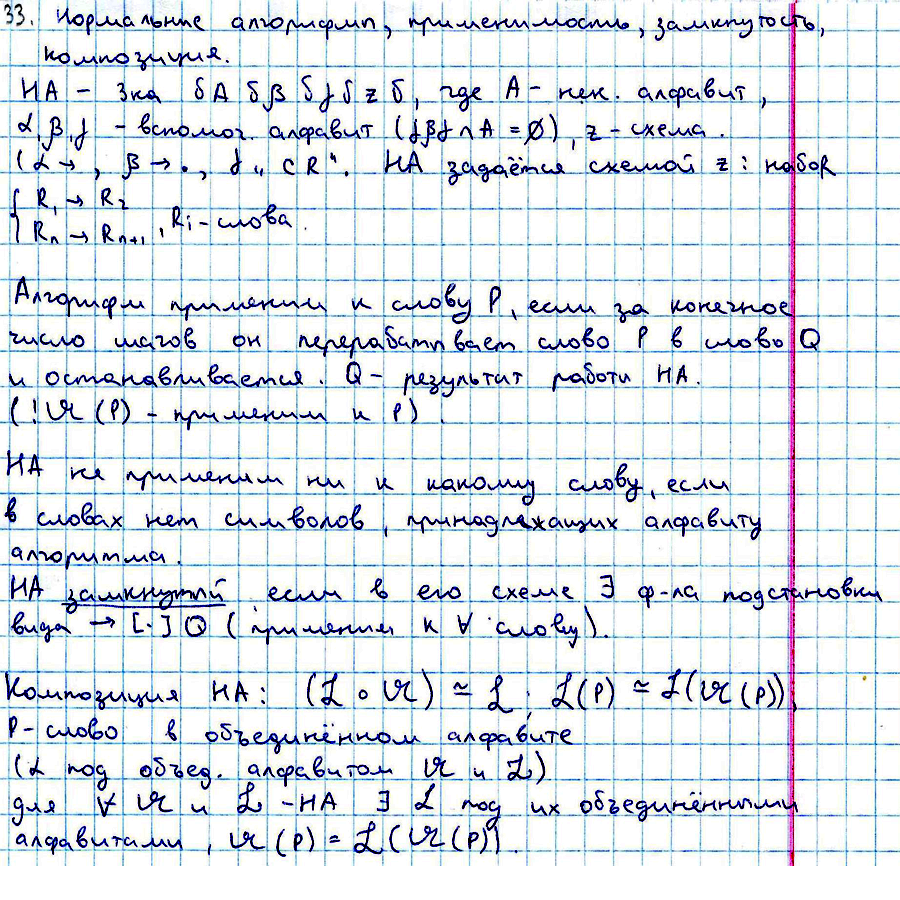 33. Нормальные алгорифмы, применимость, замкнутость,
композиция.
НА – 3ка δAδβδγδzδ, где A – нек. алфавит,
α, β, γ – вспомог. алфавит (γβγ∩A = ∅), z – схема.
(α →, β → ·, γ „CR“. НА задаётся схемой z: набоR
{ R₁ → R₂
{ Rₙ → Rₙ₊₁, Rᵢ – слова
Алгорифм применим к слову P, если за конечное
число шагов он перерабатывает слово P в слово Q
и останавливается. Q – результат работы НА.
(!𝔄(P) – применим к P).
НА не применим ни к какому слову, если
в словах нет символов, принадлежащих алфавиту
алгоритма.
НА замкнутый если в его схеме ∃ ф-ла подстановки
вида → [·] Q (применим к ∀ слову).
Композиция НА: (ℒ ∘ 𝔄) ≃ ℒ; ℒ(P) ≃ ℒ(𝔄(P)),
P – слово в объединённом алфавите
(ℒ под объед. алфавитом 𝔄 и ℒ)
для ∀ 𝔄 и ℒ – НА ∃ ℒ под их объединёнными
алфавитами, 𝔄(P) = ℒ(𝔄(P)).